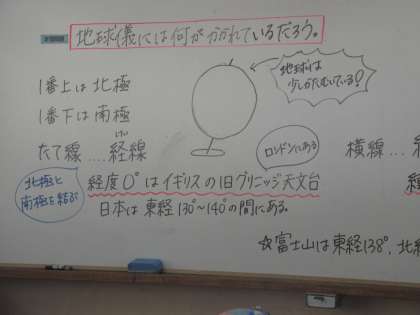 地球儀には何が示されているだろう。
地球は
少しかたむいている！
1番上は北極
1番下は南極
たて線…経線
けい
ロンドンにある
横線…
北極と
南極を結ぶ
経度0°はイギリスの旧グリニッジ天文台
日本は東経130°～140°の間にある。
☆富士山は東経138°、北緯